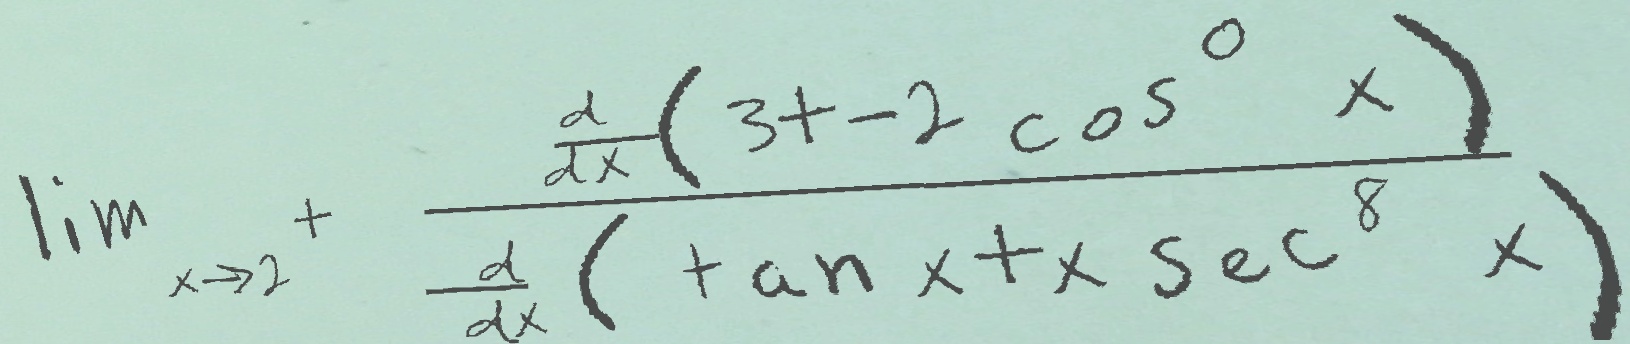 \lim_{x \to 2^+} \frac{\frac{d}{dx}(3+-2\cos^0 x)}{\frac{d}{dx}(\tan x+x\sec^8 x)}